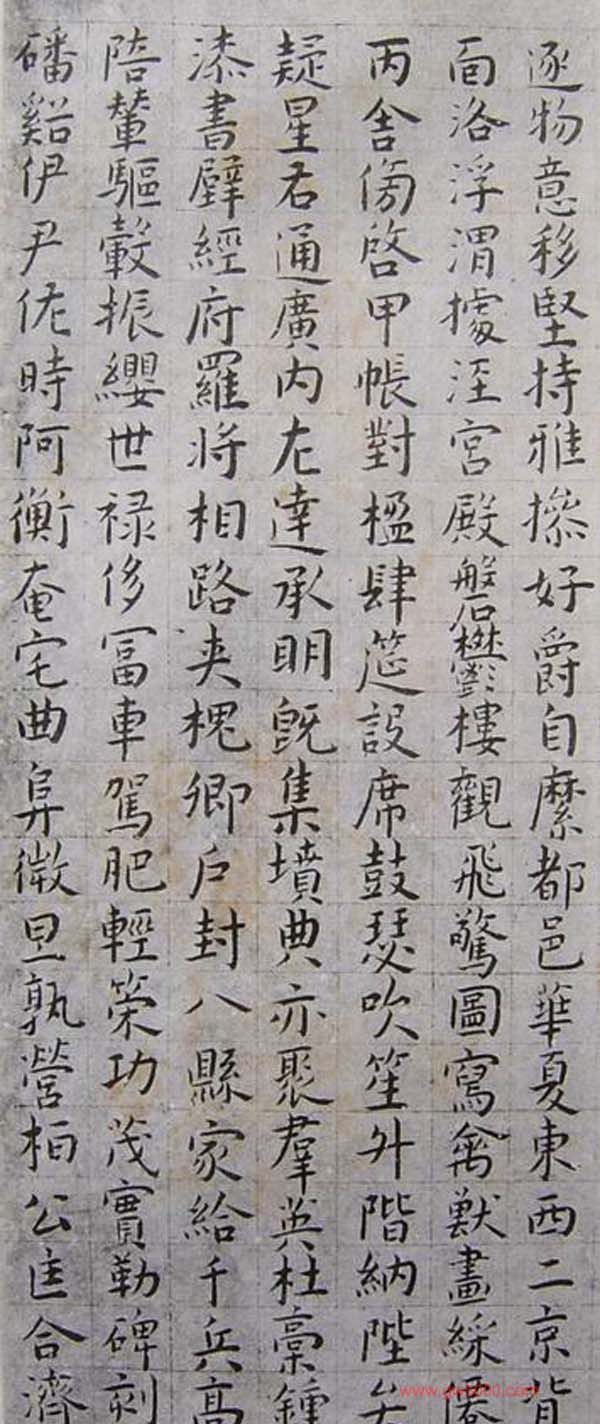 逐物意移堅持雅操好爵自縻都邑華夏東西二京背
面洛浮渭據涇宮殿磐鬱樓觀飛驚圖寫禽獸畫綵僊
丙舍傍啓甲帳對楹肆筵設席鼓瑟吹笙升階納陛弁
疑星右通廣内左達承明既集墳典亦聚羣英杜稾鍾
漆書壁經府羅將相路夾槐卿户封八縣家給千兵高
陪輦驅轂振纓世禄侈冨車駕肥輕策功茂實勒碑刻
磻谿伊尹佐時阿衡奄宅曲阜微旦孰營桓公匡合濟